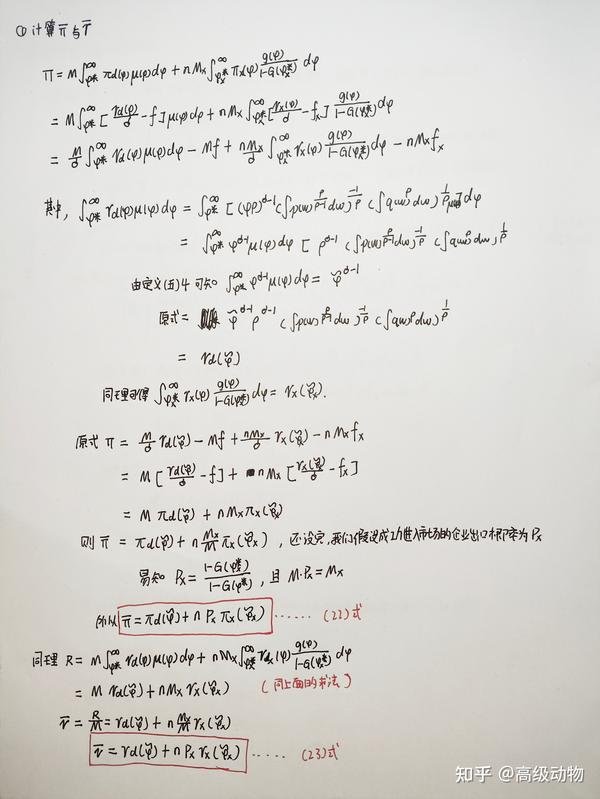 ① 计算 π̄ 与 r̄
Π = M∫_{φ*}^{∞} π_d(φ)μ(φ)dφ + nM_x∫_{φ_x*}^{∞} π_x(φ) g(φ)/(1-G(φ_x*)) dφ
= M∫_{φ*}^{∞} [r_d(φ)/σ - f] μ(φ)dφ + nM_x ∫_{φ_x*}^{∞} [r_x(φ)/σ - f_x] g(φ)/(1-G(φ_x*)) dφ
= M/σ ∫_{φ*}^{∞} r_d(φ)μ(φ)dφ - Mf + nM_x/σ ∫_{φ_x*}^{∞} r_x(φ) g(φ)/(1-G(φ_x*)) dφ - nM_x f_x
其中, ∫_{φ*}^{∞} r_d(φ)μ(φ)dφ = ∫_{φ*}^{∞} [(φρ)^{σ-1} (∫p(ω)^{ρ/(ρ-1)} dω)^{-1/ρ} (∫q(ω)^ρ dω)^{1/ρ} μ(φ)] dφ
= ∫_{φ*}^{∞} φ^{σ-1} μ(φ)dφ [ρ^{σ-1} (∫p(ω)^{ρ/(ρ-1)} dω)^{-1/ρ} (∫q(ω)^ρ dω)^{1/ρ}
由定义(五)4 可知 ∫_{φ*}^{∞} φ^{σ-1} μ(φ)dφ = φ̃^{σ-1}
原式 = φ̃^{σ-1} ρ^{σ-1} (∫p(ω)^{ρ/(ρ-1)} dω)^{-1/ρ} (∫q(ω)^ρ dω)^{1/ρ}
= r_d(φ̃)
同理可得 ∫_{φ_x*}^{∞} r_x(φ) g(φ)/(1-G(φ_x*)) dφ = r_x(φ̃_x).
原式 Π = M/σ r_d(φ̃) - Mf + nM_x/σ r_x(φ̃_x) - nM_x f_x
= M [r_d(φ̃)/σ - f] + nM_x [r_x(φ̃_x)/σ - f_x]
= M π_d(φ̃) + nM_x π_x(φ̃_x)
则 π̄ = π_d(φ̃) + n M_x/M π_x(φ̃_x), 还没完, 我们假设成功进入市场的企业出口概率为 P_x
易知 P_x = (1-G(φ_x*))/(1-G(φ*)), 且 M·P_x = M_x
所以 π̄ = π_d(φ̃) + n P_x π_x(φ̃_x) ······ (22)式
同理 R = M∫_{φ*}^{∞} r_d(φ)μ(φ)dφ + nM_x∫_{φ_x*}^{∞} r_x(φ) g(φ)/(1-G(φ_x*)) dφ
= M r_d(φ̃) + nM_x r_x(φ̃_x) (同上面的求法)
r̄ = R/M = r_d(φ̃) + n M_x/M r_x(φ̃_x)
r̄ = r_d(φ̃) + n P_x r_x(φ̃_x) ····· (23)式
知乎 @高级动物